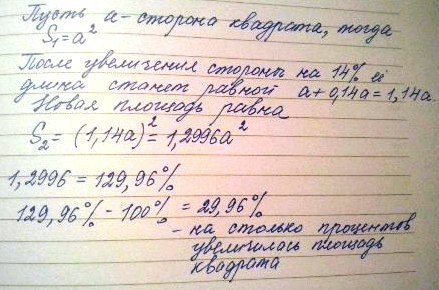 Пусть а - сторона квадрата, тогда
S₁ = a²
После увеличения стороны на 14% её
длина станет равной a + 0,14a = 1,14a.
Новая площадь равна
S₂ = (1,14a)² = 1,2996a²
1,2996 = 129,96%
129,96% - 100% = 29,96%
- на столько процентов
увеличилась площадь
квадрата